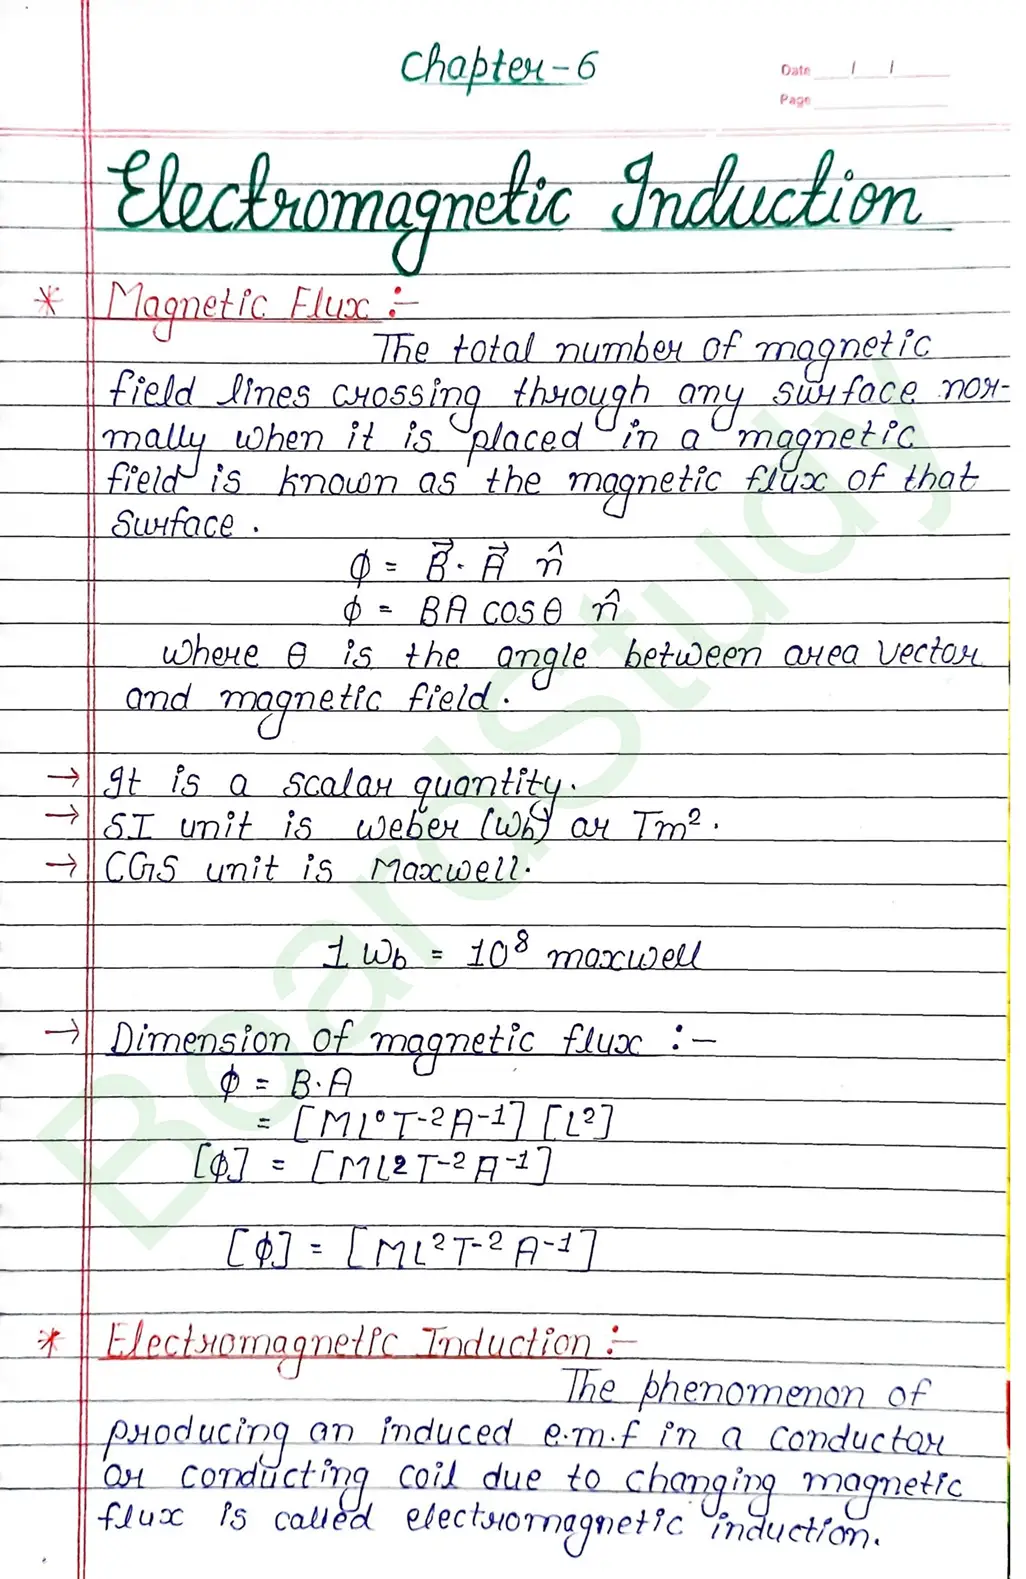 Chapter-6
Date / /
Page
Electromagnetic Induction
* Magnetic Flux :-
The total number of magnetic
field lines crossing through any surface nor-
mally when it is placed in a magnetic
field is known as the magnetic flux of that
surface.
ϕ = B⃗ · A⃗ n̂
ϕ = BA cosθ n̂
where θ is the angle between area vector
and magnetic field.
→ It is a scalar quantity.
→ SI unit is weber (Wb) or Tm².
→ CGS unit is Maxwell.
1 Wb = 10⁸ maxwell
→ Dimension of magnetic flux :-
ϕ = B·A
= [ML⁰T⁻²A⁻¹] [L²]
[ϕ] = [ML²T⁻²A⁻¹]
[ϕ] = [ML²T⁻²A⁻¹]
* Electromagnetic Induction :-
The phenomenon of
producing an induced e.m.f in a conductor
or conducting coil due to changing magnetic
flux is called electromagnetic induction.
BoardStudy